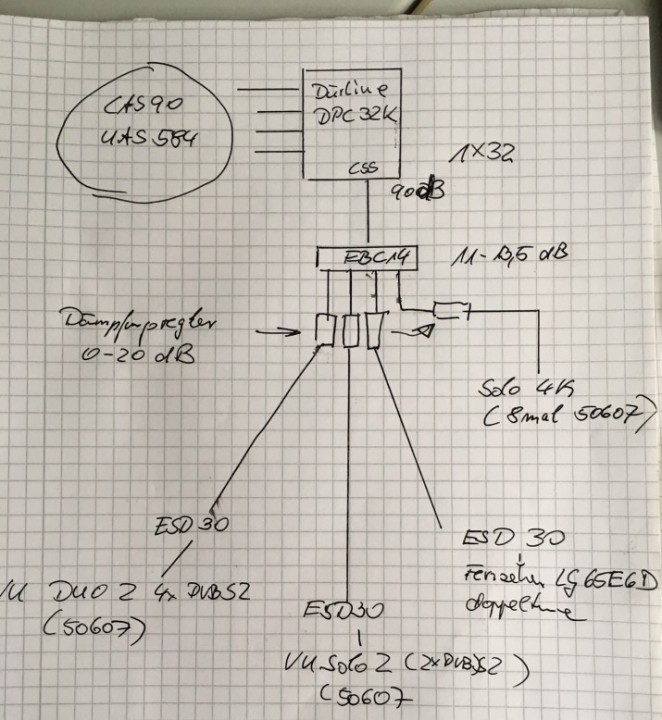 CAS90
UAS584
Dürline
DPC32K
CSS
1x32
90dB
EBC14
11-13,5 dB
Dämpfungsregler
0-20 dB
Solo 4K
(8mal 50607)
ESD 30
VU DUO 2 4x DVBS2
(50607)
ESD30
VU Solo 2 (2xDVBS2)
(50607
ESD 30
Fernseher LG65E6D
doppeltune